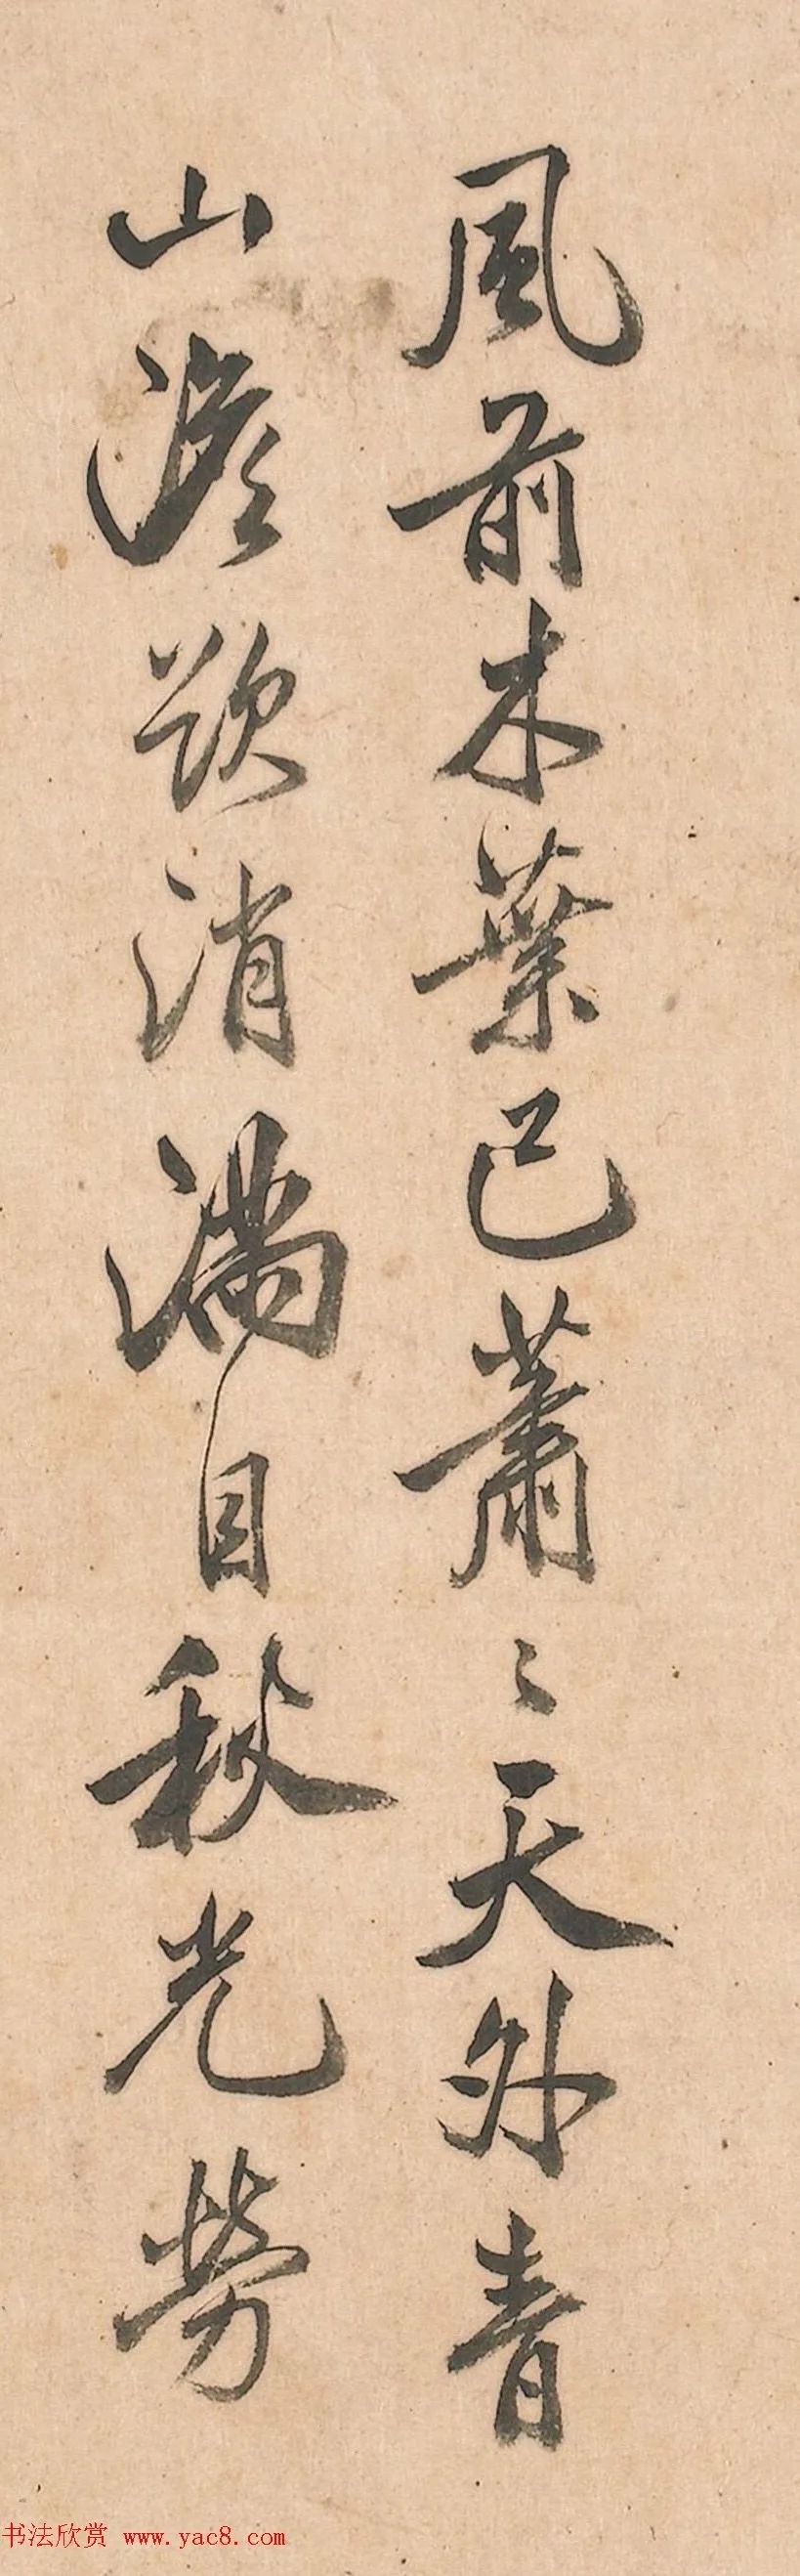 風前木葉已蕭〻天外青
山澹欲消滿目秋光勞
书法欣赏 www.yac8.com